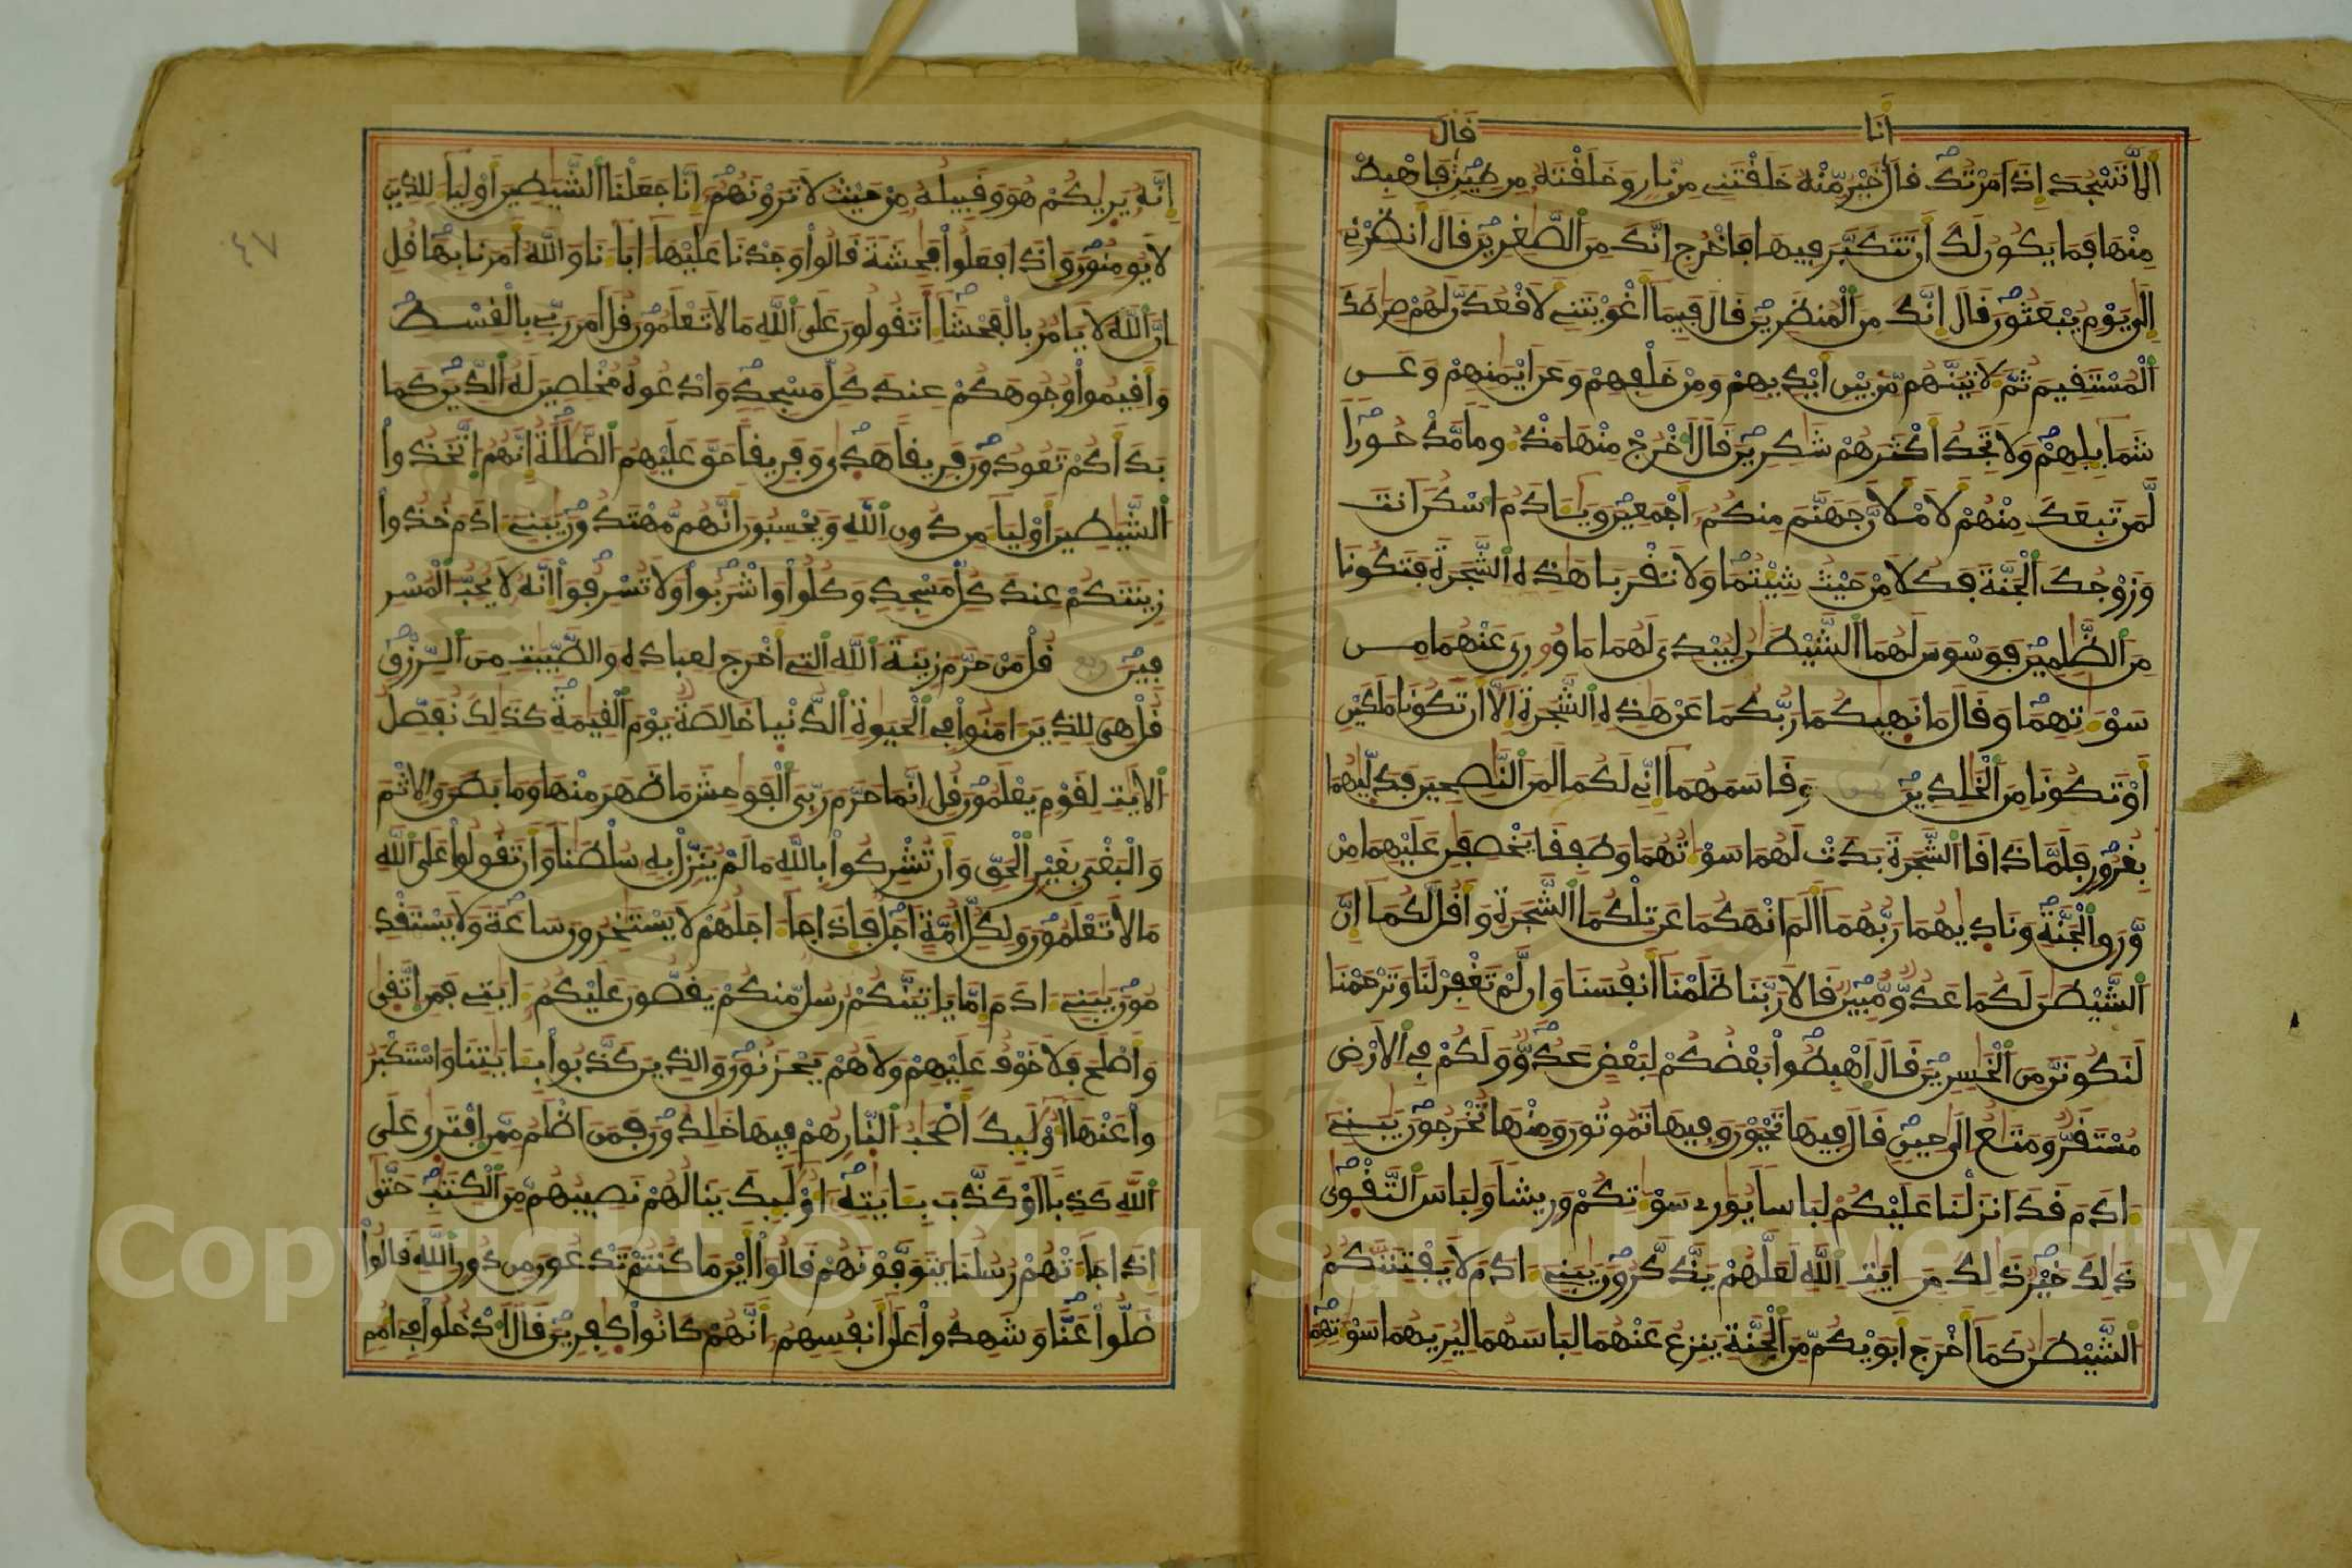 أنا
قال
ألا تسجد إذ امرتك قال خير منه خلقتنے من نار وخلقته من طين فاهبط
منها فما يكون لك أن تتكبر فيها فاخرج إنك من الصغرين قال أنظرنے
إلى يوم يبعثون قال إنك من المنظرين قال فبما أغويتنے لأقعدن لهم صرطك
المستقيم ثم لأتينهم من بين أيديهم ومن خلفهم وعن أيمنهم وعن
شمايلهم ولا تجد أكثرهم شكرين قال اخرج منها مذءوما مدحورا
لمن تبعك منهم لأملأن جهنم منكم أجمعين ويادم اسكن انت
وزوجك الجنة فكلا من حيث شيتما ولا تقربا هذه الشجرة فتكونا
من الظلمين فوسوس لهما الشيطن ليبدى لهما ما وورى عنهما من
سوءتهما وقال ما نهيكما ربكما عن هذه الشجرة إلا أن تكونا ملكين
أو تكونا من الخلدين وقاسمهما إنے لكما لمن النصحين فدليهما
بغرور فلما ذاقا الشجرة بدت لهما سوءتهما وطفقا يخصفن عليهما من
ورق الجنة وناديهما ربهما ألم انهكما عن تلكما الشجرة وأقل لكما إن
الشيطن لكما عدو مبين قالا ربنا ظلمنا أنفسنا وإن لم تغفر لنا وترحمنا
لنكونن من الخسرين قال اهبطوا بعضكم لبعض عدو ولكم في الارض
مستقر ومتع إلى حين قال فيها تحيون وفيها تموتون ومنها تخرجون يبنے
ءادم قد انزلنا عليكم لباسا يورى سوءتكم وريشا ولباس التقوى
ذلك خير ذلك من ءايت الله لعلهم يذكرون يبنے ءادم لا يفتننكم
الشيطن كما أخرج أبويكم من الجنة ينزع عنهما لباسهما ليريهما سوءتهما
إنه يريكم هو وقبيله من حيث لا ترونهم إنا جعلنا الشيطين أولياء للذين
لا يومنون وإذا فعلوا فحشة قالوا وجدنا عليها ءاباءنا والله أمرنا بها قل
إن الله لا يامر بالفحشاء اتقولون على الله ما لا تعلمون قل أمر ربے بالقسط
وأقيموا وجوهكم عند كل مسجد وادعوه مخلصين له الدين كما
بدأكم تعودون فريقا هدى وفريقا حق عليهم الضللة إنهم اتخذوا
الشيطين أولياء من دون الله ويحسبون أنهم مهتدون يبنے ءادم خذوا
زينتكم عند كل مسجد وكلوا واشربوا ولا تسرفوا إنه لا يحب المسر
فين قل من حرم زينة الله التے أخرج لعباده والطيبت من الرزق
قل هى للذين ءامنوا في الحيوة الدنيا خالصة يوم القيمة كذلك نفصل
الايت لقوم يعلمون قل إنما حرم ربي الفوحش ما ظهر منها وما بطن والاثم
والبغى بغير الحق وأن تشركوا بالله ما لم ينزل به سلطنا وأن تقولوا على الله
ما لا تعلمون ولكل أمة أجل فإذا جاء اجلهم لا يستخرون ساعة ولا يستقد
مون يبنے ءادم إما ياتينكم رسل منكم يقصون عليكم ءايتے فمن اتقى
وأصلح فلا خوف عليهم ولا هم يحزنون والذين كذبوا بايتنا واستكبر
وا عنها أوليك أصحب النار هم فيها خلدون فمن اظلم ممن افترى على
الله كذبا او كذب بايته أوليك ينالهم نصيبهم من الكتب حتى
إذا جاءتهم رسلنا يتوفونهم قالوا أين ما كنتم تدعون من دون الله قالوا
ضلوا عنا وشهدوا على أنفسهم أنهم كانوا كفرين قال ادخلوا في أمم
٤٧
Copyright © King Saud University
1957